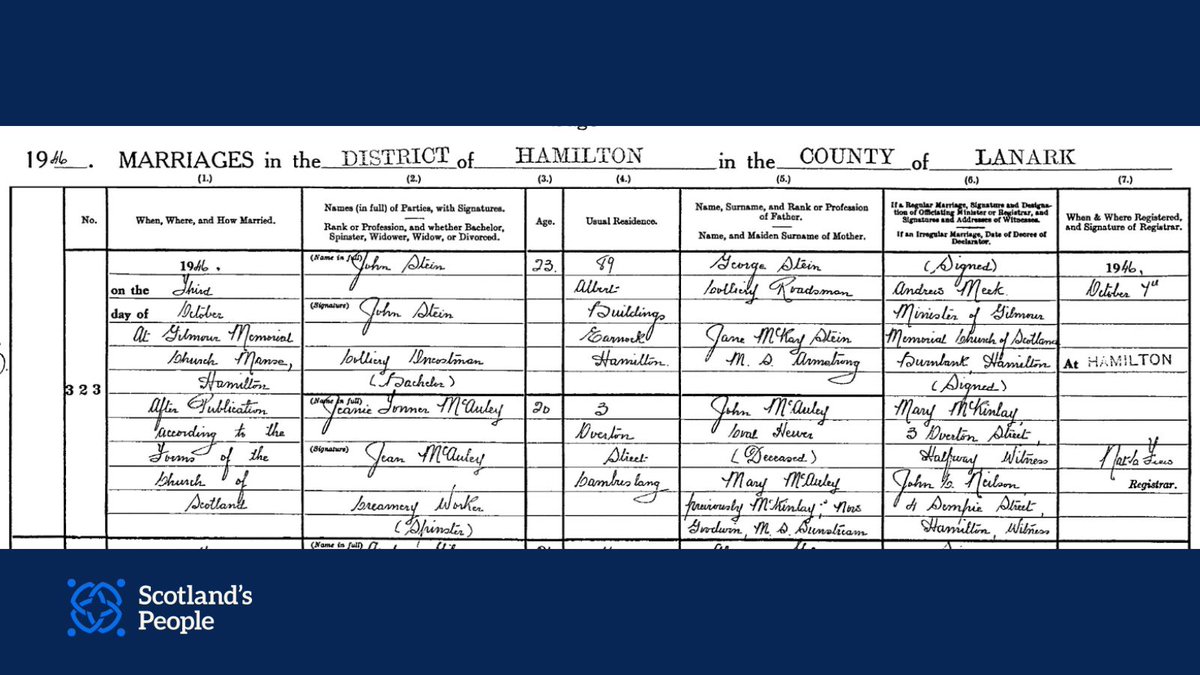 1946. MARRIAGES in the DISTRICT of HAMILTON in the COUNTY of LANARK
(1.) (2.) (3.) (4.) (5.) (6.) (7.)
No.
When, Where, and How Married.
Names (in full) of Parties, with Signatures.
Rank or Profession, and whether Bachelor,
Spinster, Widower, Widow, or Divorced.
Age.
Usual Residence.
Name, Surname, and Rank or Profession
of Father.
Name, and Maiden Surname of Mother.
If a Regular Marriage, Signature and Designa-
tion of Officiating Minister or Registrar, and
Signatures and Addresses of Witnesses.
If an Irregular Marriage, Date of Decree of
Declarator.
When & Where Registered,
and Signature of Registrar.
323
1946.
on the Third
day of October
At Gilmour Memorial
Church Manse,
Hamilton
After Publication
according to the
Forms of the
Church of
Scotland
(Name in full) John Stein
(Signature) John Stein
Colliery Oncostman
(Bachelor)
(Name in full) Jeanie Tonner McAuley
(Signature) Jean McAuley
Creamery Worker
(Spinster)
23.
20
89
Albert
Buildings
Earnock
Hamilton.
3
Overton
Street
Cambuslang
George Stein
Colliery Roadsman
Jane McKay Stein
M. S. Armstrong
John McAuley
Coal Hewer
(Deceased)
Mary McAuley
previously McKinlay; Now
Goodwin, M. S.
(Signed)
Andrew Meek
Minister of Gilmour
Memorial Church of Scotland
Burnbank, Hamilton
(Signed)
Mary McKinlay,
3 Overton Street,
Halfway Witness
John Neilson,
4 Sempie Street,
Hamilton, Witness
1946,
October 7th
At HAMILTON
Registrar.
(Name in full)
Scotland's
People